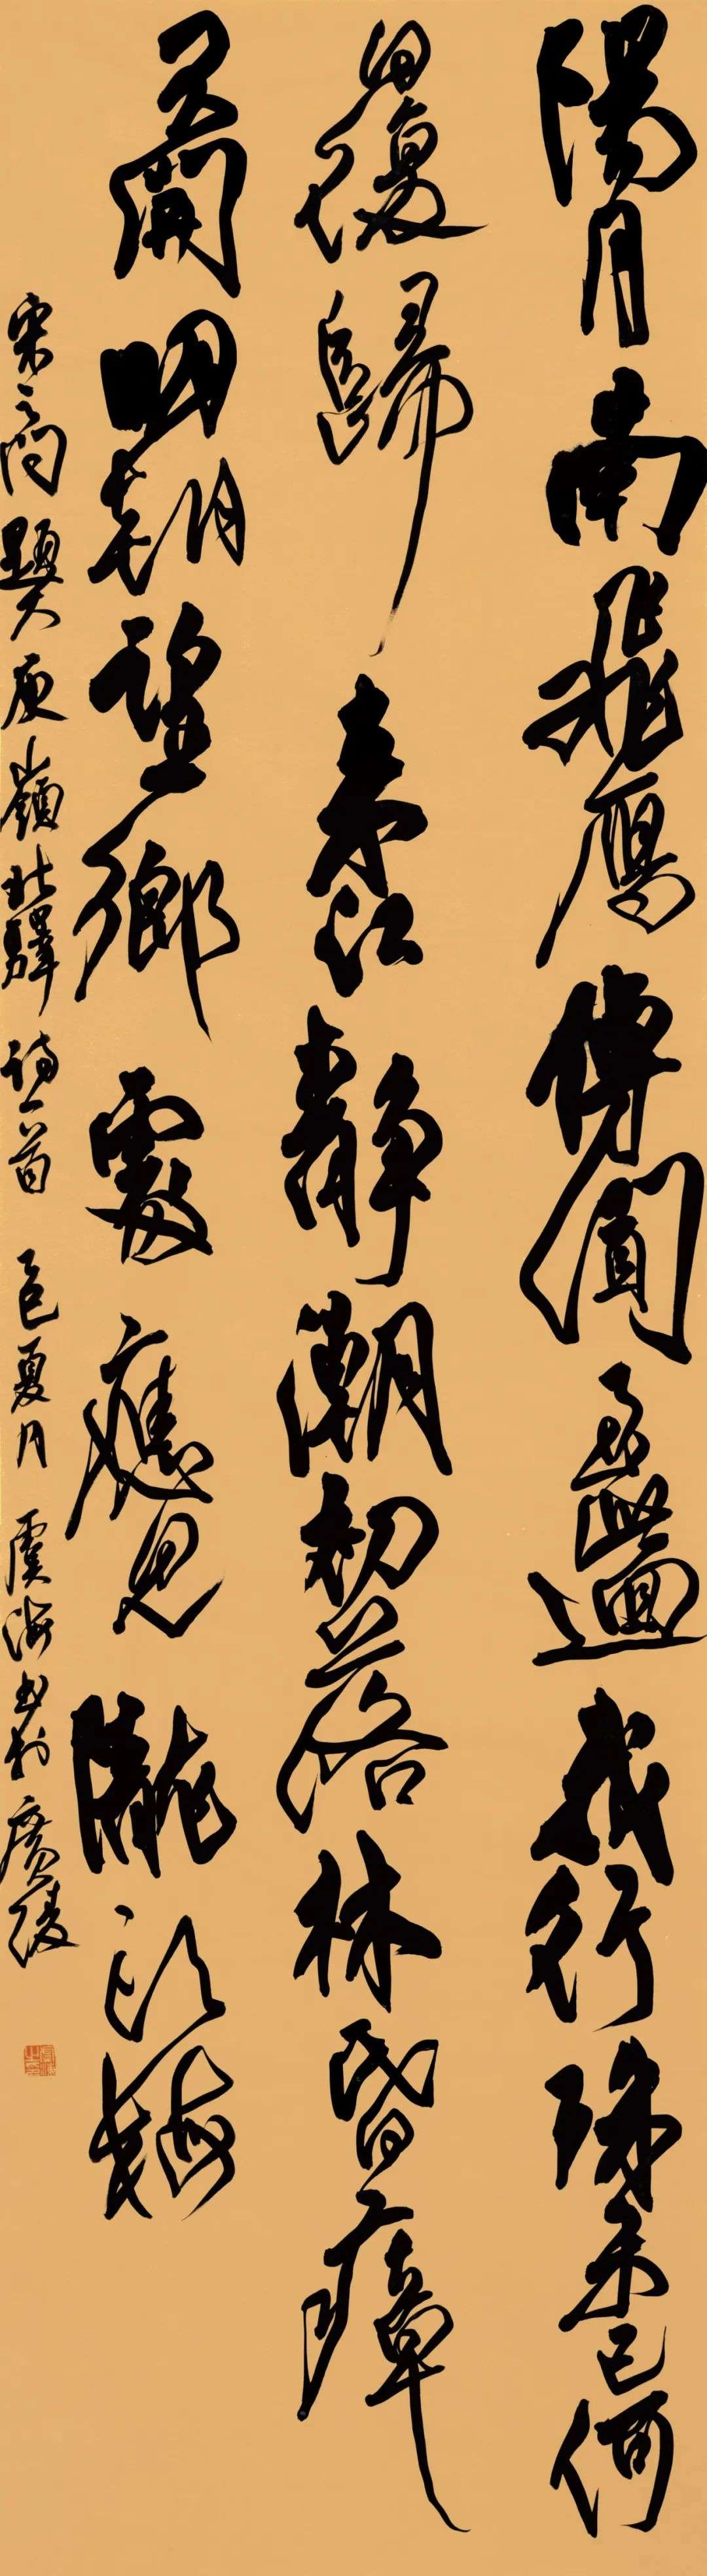 陽月南飛雁傳聞至此迴我行殊未已何
日復歸來江靜潮初落林昏瘴
不開明朝望鄉處應見隴頭梅
宋之問題大庾嶺北驛詩一首 乙巳夏月 虞海書於廣陵